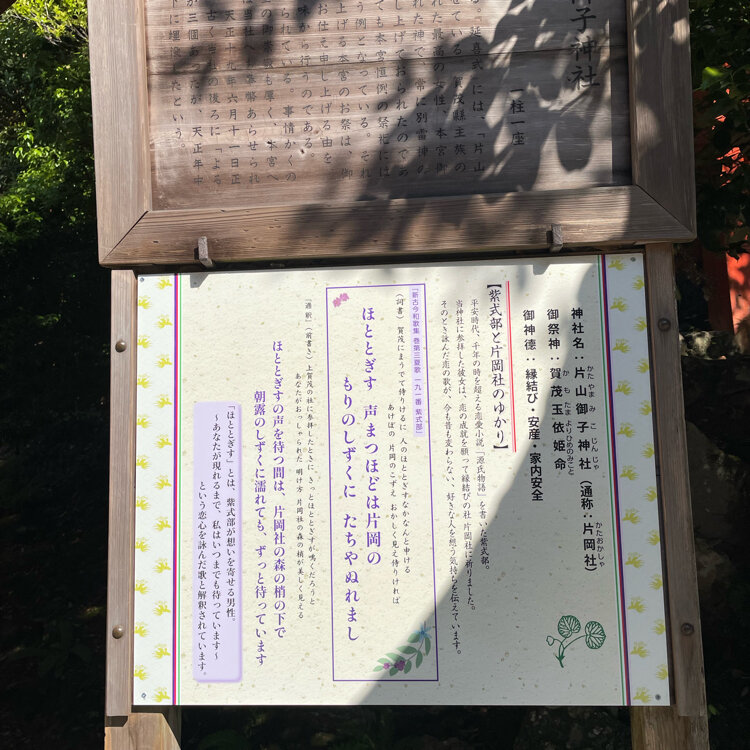 御子神社
一柱一座
「延喜式」には、「片山
せている。賀茂縣主族の
れた最高の女性、本宮御
れた神で、常に別雷神の
し上げておられたのであ
ても本宮恒例の祭祀には
う例となっている。それ
上げる本宮のお祭は、御
お仕え申し上げる由を
味から行うのである。
られている。事情かくの
の御崇敬も厚く、本宮へ
は当社へも奉幣あらせられ
天正十九年六月十一日正
古く当社の後ろに「よる
が三個あったが、天正年中
下に埋没したという。
神社名：片山御子神社（通称：片岡社）
かたやまみこじんじゃ
かたおかしゃ
御祭神：賀茂玉依姫命
かもたまよりひめのみこと
御神德：縁結び・安産・家内安全
【紫式部と片岡社のゆかり】
平安時代、千年の時を超える恋愛小説「源氏物語」を書いた紫式部。
当神社に参拝した彼女は、恋の成就を願って縁結びの社 片岡社に祈りました。
そのとき詠んだ恋の歌が、今も昔も変わらない、好きな人を想う気持ちを伝えています。
『新古今和歌集 巻第三夏歌 一九一番 紫式部』
（詞書）賀茂にまうでて侍りけるに 人のほととぎすなかなんと申ける
あけぼの 片岡のこずえ おかしく見え侍りければ
ほととぎす 声まつほどは片岡の
もりのしずくに たちやぬれまし
通釈 （前書き）上賀茂の社に参拝したときに、きっとほととぎすが鳴くだろうと
あなたがおっしゃられた 明け方 片岡社の森の梢が美しく見える
ほととぎすの声を待つ間は、片岡社の森の梢の下で
朝露のしずくに濡れても、ずっと待っています
「ほととぎす」とは、紫式部が想いを寄せる男性。
～あなたが現れるまで、私はいつまでも待っています～
という恋心を詠んだ歌と解釈されています。